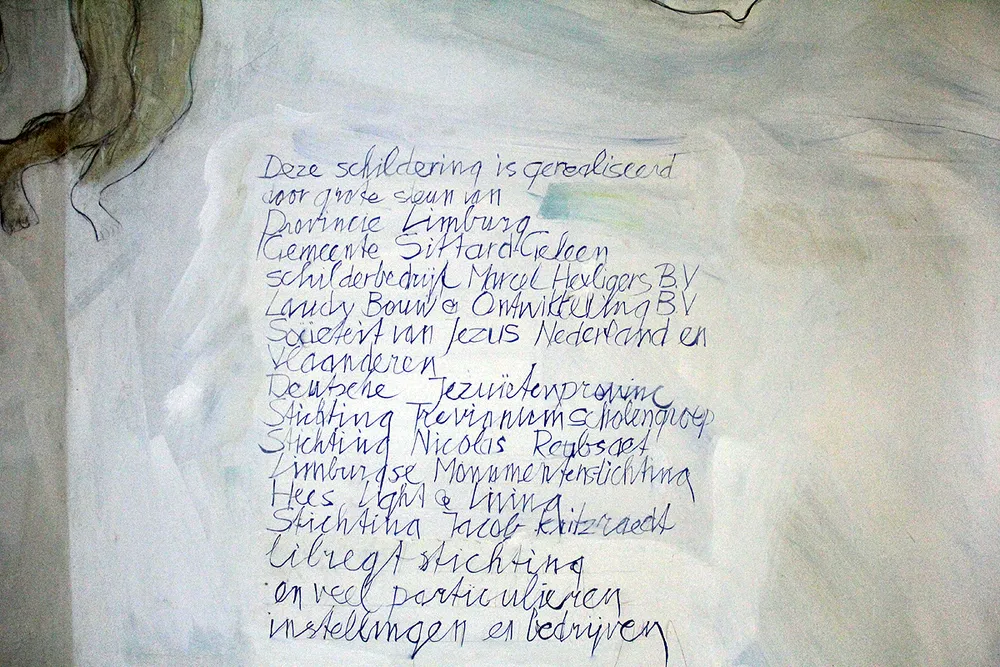 Deze schildering is gerealiseerd
door grote steun van
Provincie Limburg
Gemeente Sittard-Geleen
schilderbedrijf Marcel Hexligers B.V
Laudy Bouw & Ontwikkeling B.V
Sociëteit van Jezus Nederland en
Vlaanderen
Deutsche Jezuïetenprovinc
Stichting Trevianum scholengroep
Stichting Nicolas Reubsaet
Limburgse Monumentenstichting
Hees Light & Living
Stichting Jacob Kritzraedt
libregt stichting
en veel particulieren
instellingen en bedrijven